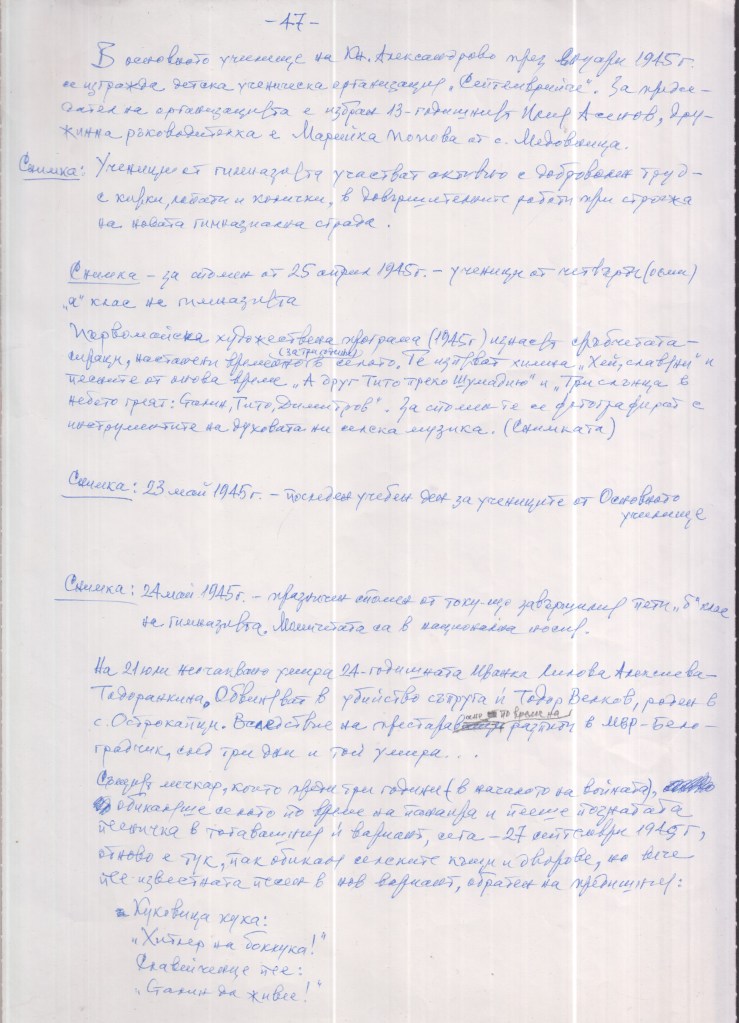 - 47 -
В основното училище на Кн. Александрово през януари 1945 г.
се изгражда детска ученическа организация „Септемврийче“. За предсе-
дател на организацията е избран 13-годишният Илия Асенов, дру-
жинна ръководителка е Марейка Попова от с. Медовница.
Снимка: Ученици от гимназията участват активно с доброволен труд –
с кирки, лопати и колички, в довършителните работи при строежа
на новата гимназиална сграда.
Снимка – за спомен от 25 април 1945 г. – ученици от четвърти (осми)
„а“ клас на гимназията
Първомайска художествена програма (1945 г) изнасят сръбчетата-
сираци, настанени временно в селото. Те изпяват химна „Хей, славяни“ и
песните от онова време „А друг Тито преко Шумадию“ и „Три слънца в
небето греят: Сталин, Тито, Димитров“. За спомен те се фотографират с
инструментите на духовата ни селска музика. (Снимката)
Снимка: 23 май 1945 г. – последен учебен ден за учениците от Основното
училище
Снимка: 24 май 1945 г. – празничен спомен от току-що завършилия пети „б“ клас
на гимназията. Момичетата са в национална носия.
На 21 юли неочаквано умира 24-годишната Иванка Лилова Алексиева-
Тодоранкина. Обвиняват в убийство съпруга ѝ Тодор Велков, роден в
с. Острокапци. Вследствие на престараване по време на разпити в МВР-Бело-
градчик, след три дни и той умира...
Същият мечкар, който преди три години (в началото на войната),
обикаляше селото по време на панаира и пееше познатата
песничка в тогавашния ѝ вариант, сега – 27 септември 1945 г,
отново е тук, пак обикаля селските къщи и дворове, но вече
пее известната песен в нов вариант, обратен на предишния:
„Куковица кука:
„Хитлер на боклука!“
Славейченце пее:
„Сталин да живее!“